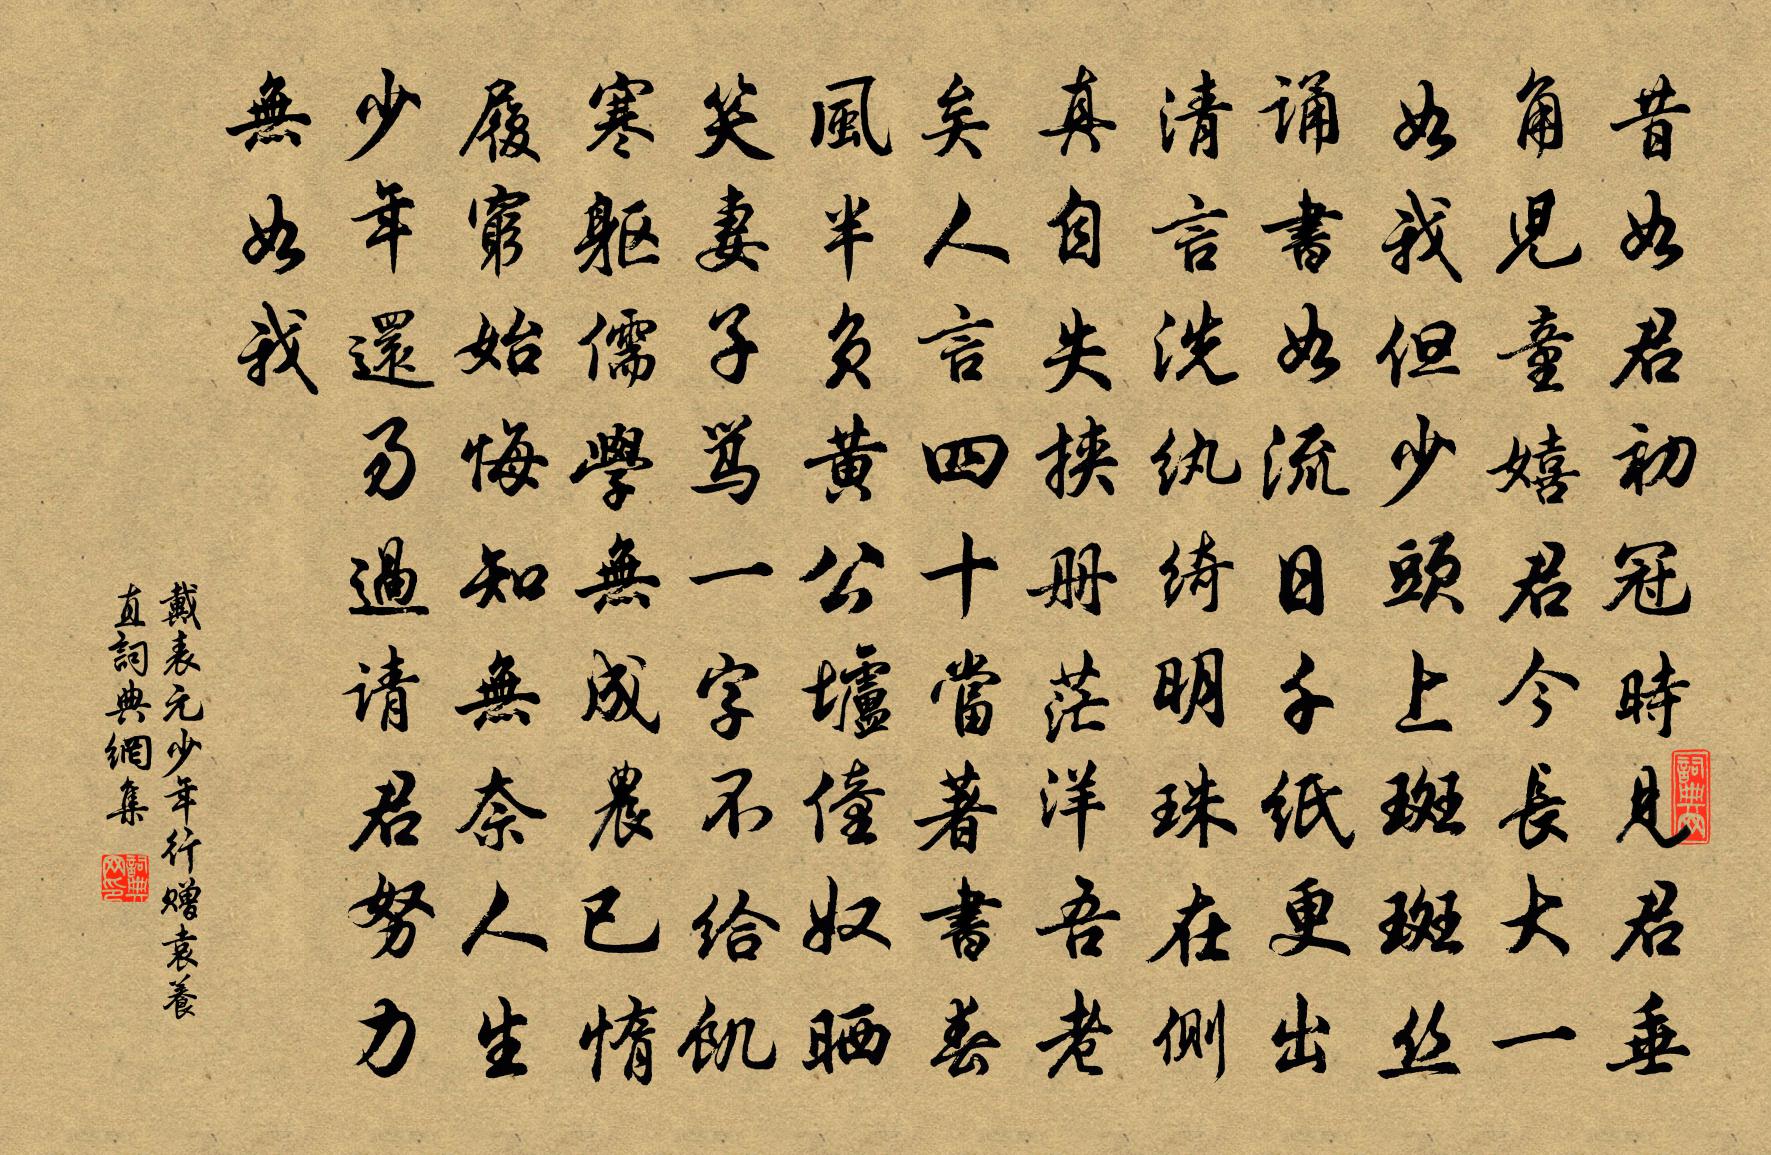 昔如君初冠時見君垂
角兒童嬉君今長大一
如我但少頭上斑斑丝
诵書如流日千紙更出
清言洗纨绮明珠在側
真自失挟册茫洋吾老
矣人言四十當著書春
風半負黄公壚僮奴晒
笑妻子骂一字不给飢
寒躯儒學無成農已惰
履窮始悔知無奈人生
少年還易過请君努力
無如我
戴表元少年行赠袁養
直詞典網集
詞典网
詞典网印